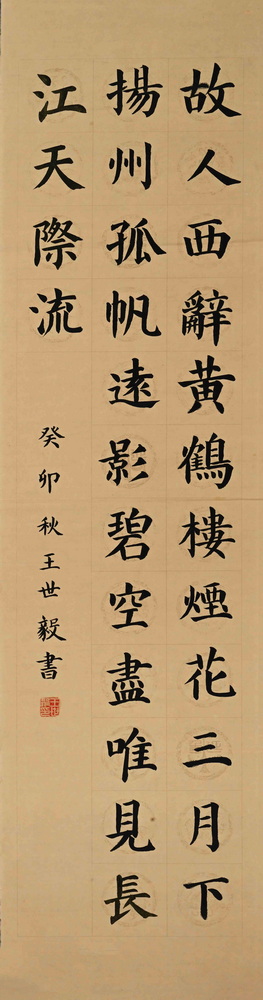 故人西辭黄鶴樓煙花三月下
揚州孤帆遠影碧空盡唯見長
江天際流
癸卯秋王世毅書